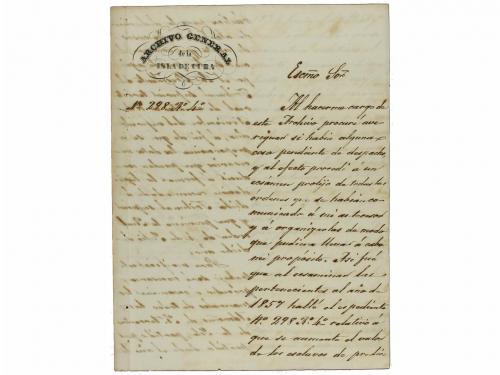 ARCHIVO GENERAL
de la
ISLA DE CUBA
Nº 298 Nº 4º
Escmo Sor
Al hacerme cargo de
este Archivo procuré ave-
riguar si habia alguna
cosa pendiente de despacho,
y al efecto procedí á un
ecsámen prolijo de todas las
órdenes qe. se habian co-
municado á mi antecesor
y á organizarlas de modo
que pudiera llenar á cabo
mi propósito. Asi fué
que al ecsaminar las
pertenecientes al año de
1857 hallé el espediente
Nº 298 Nº 4º relativo á
que se aumente el valor
de los esclavos de